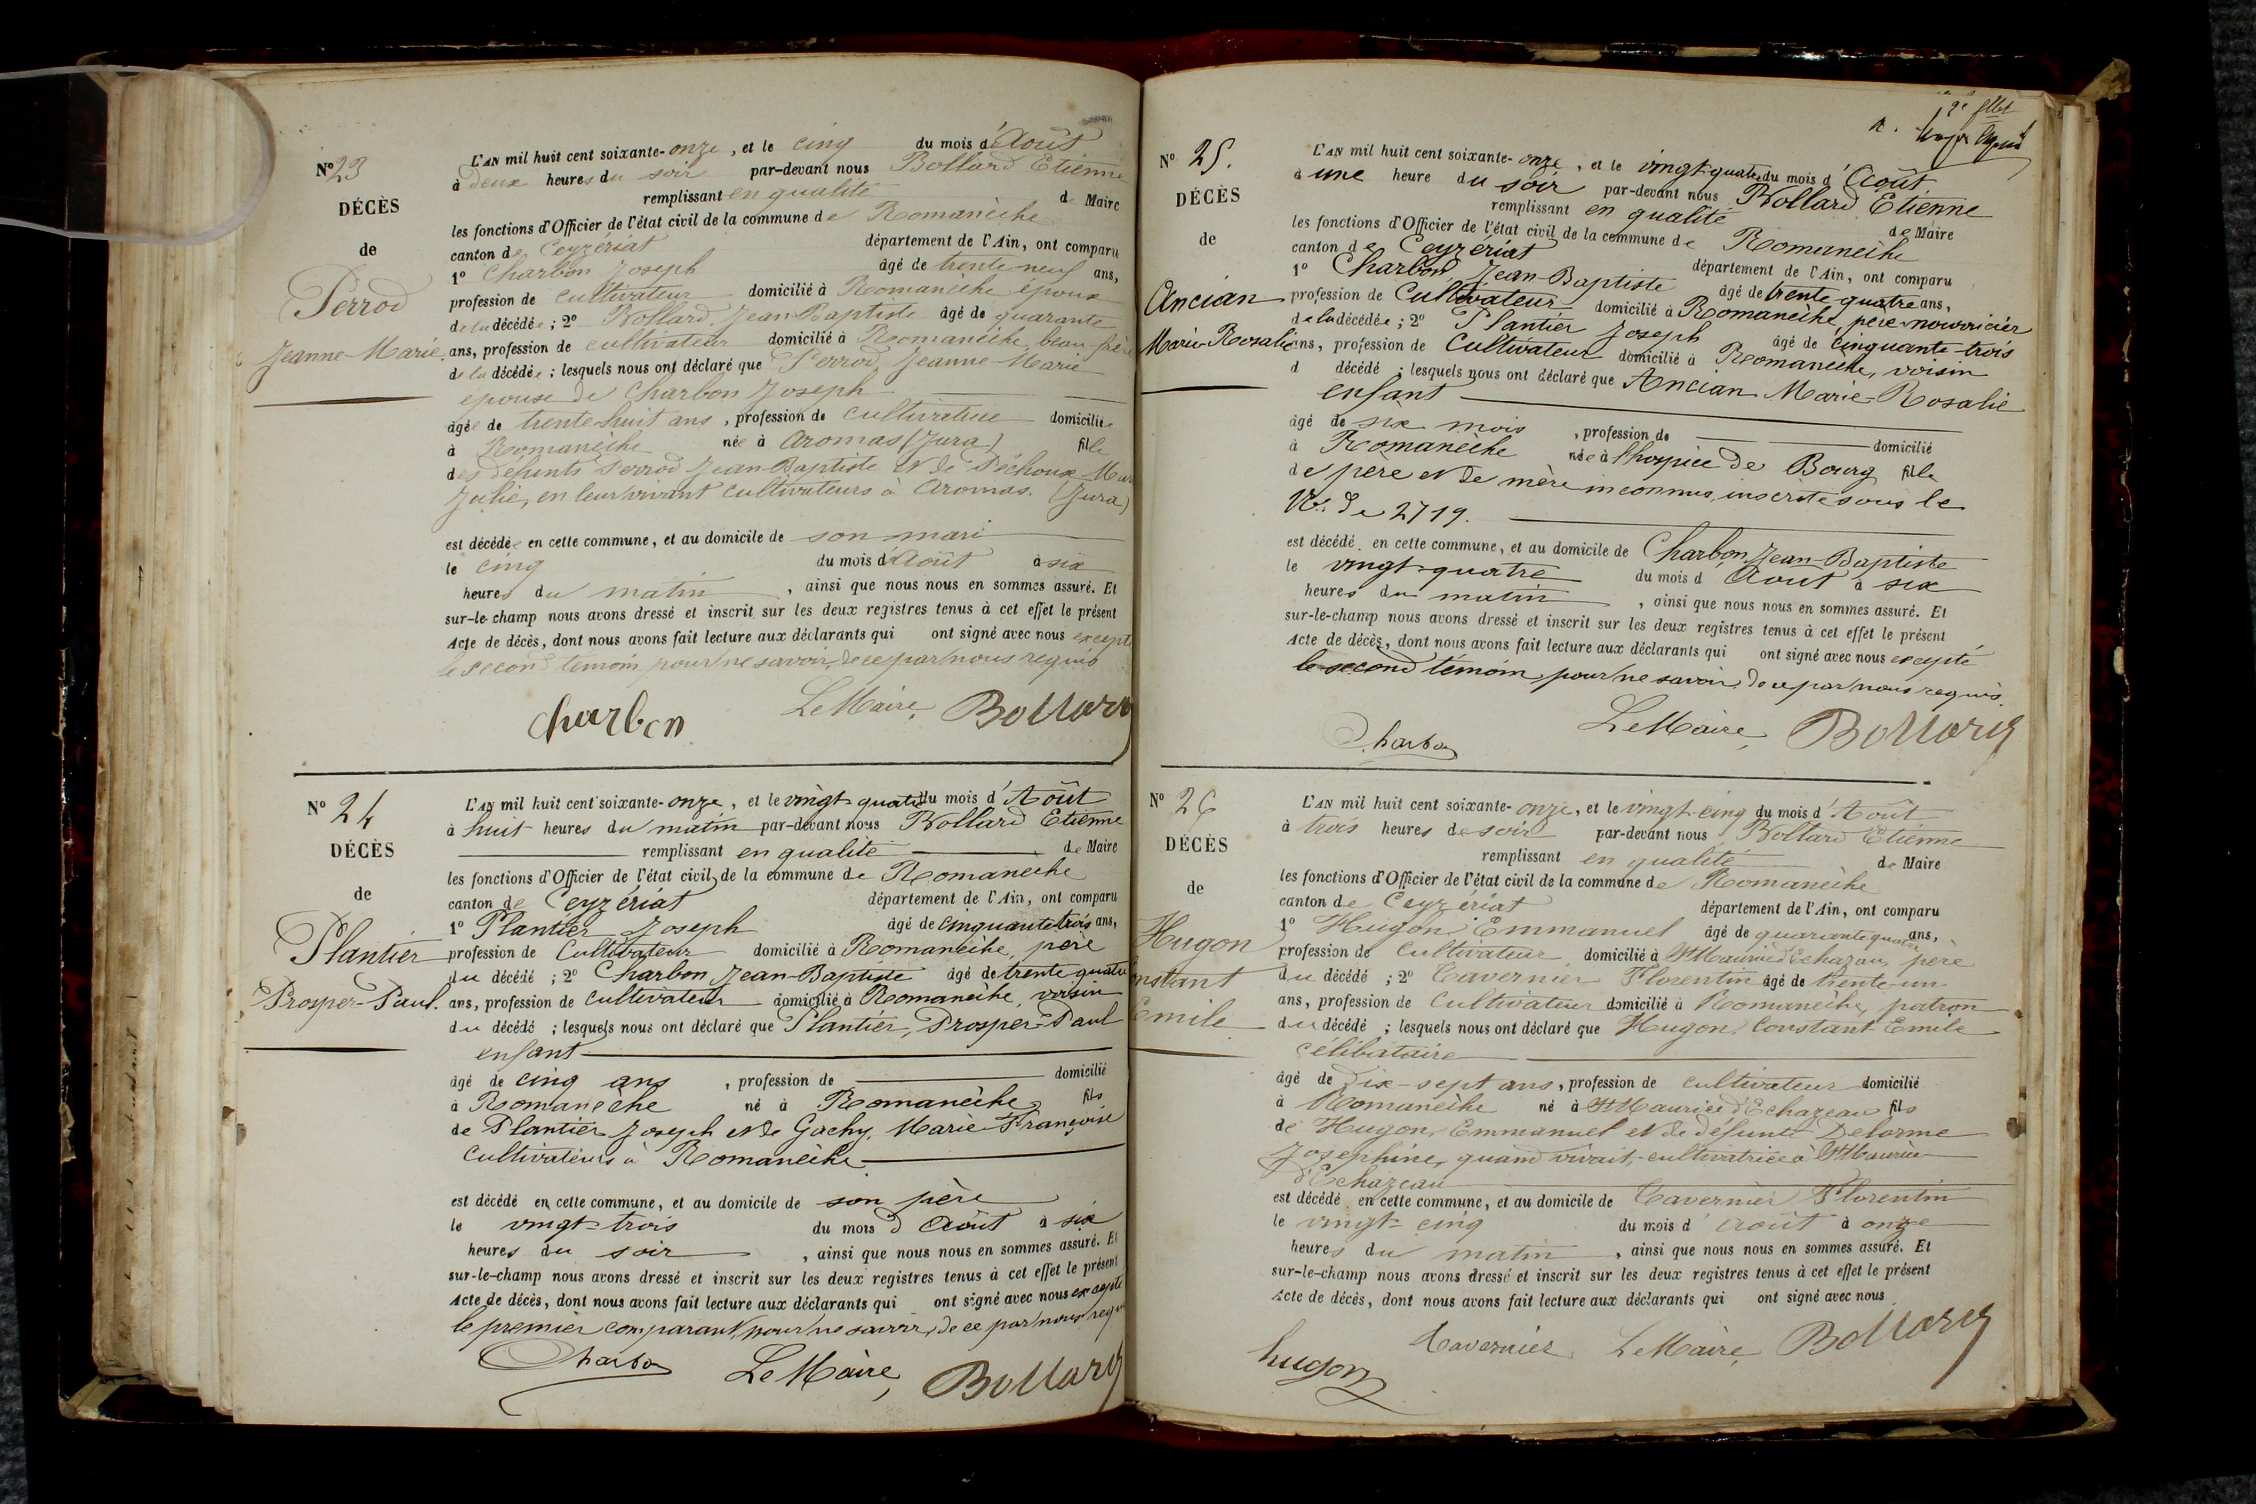 N° 23
DÉCÈS
de
Perrod
Jeanne-Marie.
L'AN mil huit cent soixante-onze, et le cinq du mois d'Août
à deux heures du soir par-devant nous Bollard Etienne
remplissant en qualité de Maire
les fonctions d'Officier de l'état civil de la commune de Romanèche
canton de Ceyzériat département de l'Ain, ont comparu
1° Charbon Joseph âgé de trente-neuf ans,
profession de cultivateur domicilié à Romanèche époux
de la décédée; 2° Bollard, Jean-Baptiste âgé de quarante
ans, profession de cultivateur domicilié à Romanèche, beau frère
de la décédée; lesquels nous ont déclaré que Perrod, Jeanne-Marie
épouse de Charbon Joseph
âgée de trente-huit ans, profession de cultivatrice domiciliée
à Romanèche née à Aromas (Jura) fille
des défunts Perrod Jean-Baptiste et de Péchoux
Julie, en leur vivant cultivateurs à Aromas. (Jura)
est décédée en cette commune, et au domicile de son mari
le cinq du mois d'Août à six
heures du matin, ainsi que nous nous en sommes assuré. Et
sur-le-champ nous avons dressé et inscrit sur les deux registres tenus à cet effet le présent
Acte de décès, dont nous avons fait lecture aux déclarants qui ont signé avec nous excepté
le second témoin pour ne savoir, de ce par nous requis
Charbon Le Maire, Bollard
N° 24
DÉCÈS
de
Plantier
Prosper-Paul.
L'AN mil huit cent soixante-onze, et le vingt-quatre du mois d'Août
à huit heures du matin par-devant nous Bollard Etienne
remplissant en qualité de Maire
les fonctions d'Officier de l'état civil de la commune de Romanèche
canton de Ceyzériat département de l'Ain, ont comparu
1° Plantier Joseph âgé de cinquante-trois ans,
profession de Cultivateur domicilié à Romanèche, père
du décédé; 2° Charbon Jean-Baptiste âgé de trente quatre
ans, profession de cultivateur domicilié à Romanèche, voisin
du décédé; lesquels nous ont déclaré que Plantier, Prosper-Paul
enfant
âgé de cinq ans, profession de domicilié
à Romanèche né à Romanèche fils
de Plantier Joseph et de Gachy, Marie-Françoise
Cultivateurs à Romanèche.
est décédé en cette commune, et au domicile de son père
le vingt-trois du mois d Août à six
heures du soir, ainsi que nous nous en sommes assuré. Et
sur-le-champ nous avons dressé et inscrit sur les deux registres tenus à cet effet le présent
Acte de décès, dont nous avons fait lecture aux déclarants qui ont signé avec nous excepté
le premier comparant pour ne savoir, de ce par nous requis
Charbon Le Maire, Bollard
N° 25.
DÉCÈS
de
Ancian
Marie-Rosalie
L'AN mil huit cent soixante-onze, et le vingt-quatre du mois d'Août
à une heure du soir par-devant nous Bollard Etienne
remplissant en qualité de Maire
les fonctions d'Officier de l'état civil de la commune de Romanèche
canton de Ceyzériat département de l'Ain, ont comparu
1° Charbon Jean-Baptiste âgé de trente-quatre ans,
profession de Cultivateur domicilié à Romanèche, père-nourricier
de la décédée; 2° Plantier Joseph âgé de cinquante-trois
ans, profession de Cultivateur domicilié à Romanèche, voisin
d décédé; lesquels nous ont déclaré que Ancian Marie-Rosalie
enfant
âgé de six mois, profession de domicilié
à Romanèche née à l'hospice de Bourg fille
de père et de mère inconnus, inscrite sous le
N°. de 2719.
est décédé en cette commune, et au domicile de Charbon Jean-Baptiste
le vingt-quatre du mois d'Août à six
heures du matin, ainsi que nous nous en sommes assuré. Et
sur-le-champ nous avons dressé et inscrit sur les deux registres tenus à cet effet le présent
Acte de décès, dont nous avons fait lecture aux déclarants qui ont signé avec nous excepté
le second témoin, pour ne savoir, de ce par nous requis.
Charbon Le Maire, Bollard
N° 26
DÉCÈS
de
Hugon
Constant
Emile
L'AN mil huit cent soixante-onze, et le vingt-cinq du mois d'Août
à trois heures de soir par-devant nous Bollard Etienne
remplissant en qualité de Maire
les fonctions d'Officier de l'état civil de la commune de Romanèche
canton de Ceyzériat département de l'Ain, ont comparu
1° Hugon Emmanuel âgé de quarante quatre ans,
profession de cultivateur domicilié à St Maurice d'Echazeau, père
du décédé; 2° Tavernier Florentin âgé de trente-un
ans, profession de Cultivateur domicilié à Romanèche, patron
du décédé; lesquels nous ont déclaré que Hugon, Constant Emile
célibataire
âgé de dix-sept ans, profession de cultivateur domicilié
à Romanèche né à St Maurice d'Echazeau fils
de Hugon, Emmanuel et de défunte Delorme
Joséphine, quand vivait, cultivatrice à St Maurice
d'Echazeau
est décédé en cette commune, et au domicile de Tavernier Florentin
le vingt-cinq du mois d'Août à onze
heures du matin, ainsi que nous nous en sommes assuré. Et
sur-le-champ nous avons dressé et inscrit sur les deux registres tenus à cet effet le présent
Acte de décès, dont nous avons fait lecture aux déclarants qui ont signé avec nous
hugon Tavernier Le Maire, Bollard